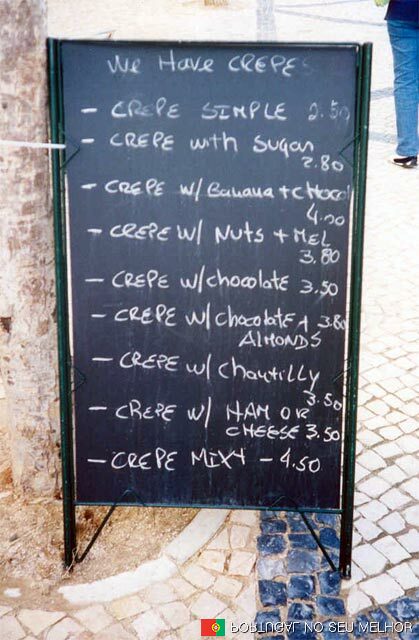 We Have CREPES
- CREPE SIMPLE 2.50
- CREPE with sugar
2.80
- CREPE w/ Banana + CHOCO
4.00
- CREPE W/ NUTS + MEL
3.80
- CREPE W/chocolate 3.50
- CREPE w/chocolate + 3.80
ALMONDS
- CREPE w/chautilly
3.50
- CREPE w/ HAM OR
CHEESE 3.50
- CREPE MIXY - 4.50
PORTUGAL NO SEU MELHOR